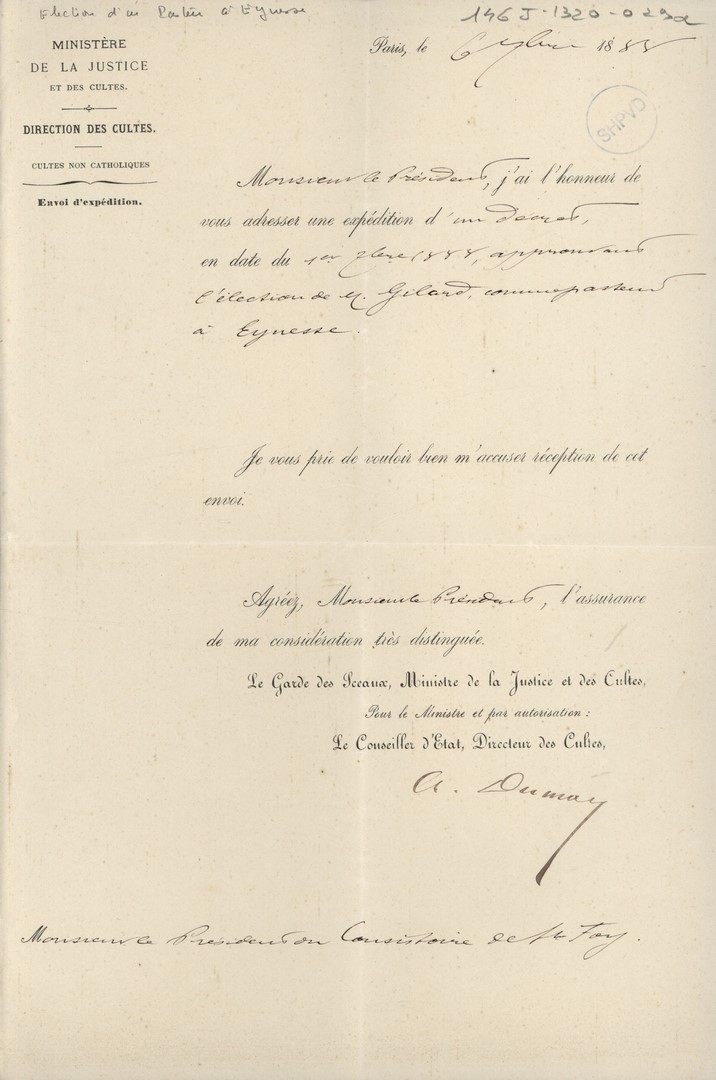 Election d'un Pasteur à Eynesse
146 J-1320-029a
MINISTÈRE
DE LA JUSTICE
ET DES CULTES.
DIRECTION DES CULTES.
CULTES NON CATHOLIQUES
Envoi d'expédition.
Paris, le 6 7bre 1888
SHPVD
Monsieur le Président, j'ai l'honneur de
vous adresser une expédition d'un Décret,
en date du 1er 7bre 1888, approuvant
l'élection de M. Gilard, comme pasteur
à Eynesse.
Je vous prie de vouloir bien m'accuser réception de cet
envoi.
Agréez, Monsieur le Président, l'assurance
de ma considération très distinguée.
Le Garde des Sceaux, Ministre de la Justice et des Cultes,
Pour le Ministre et par autorisation :
Le Conseiller d'Etat, Directeur des Cultes,
A. Dumay
Monsieur le Président du Consistoire de Ste Foy.